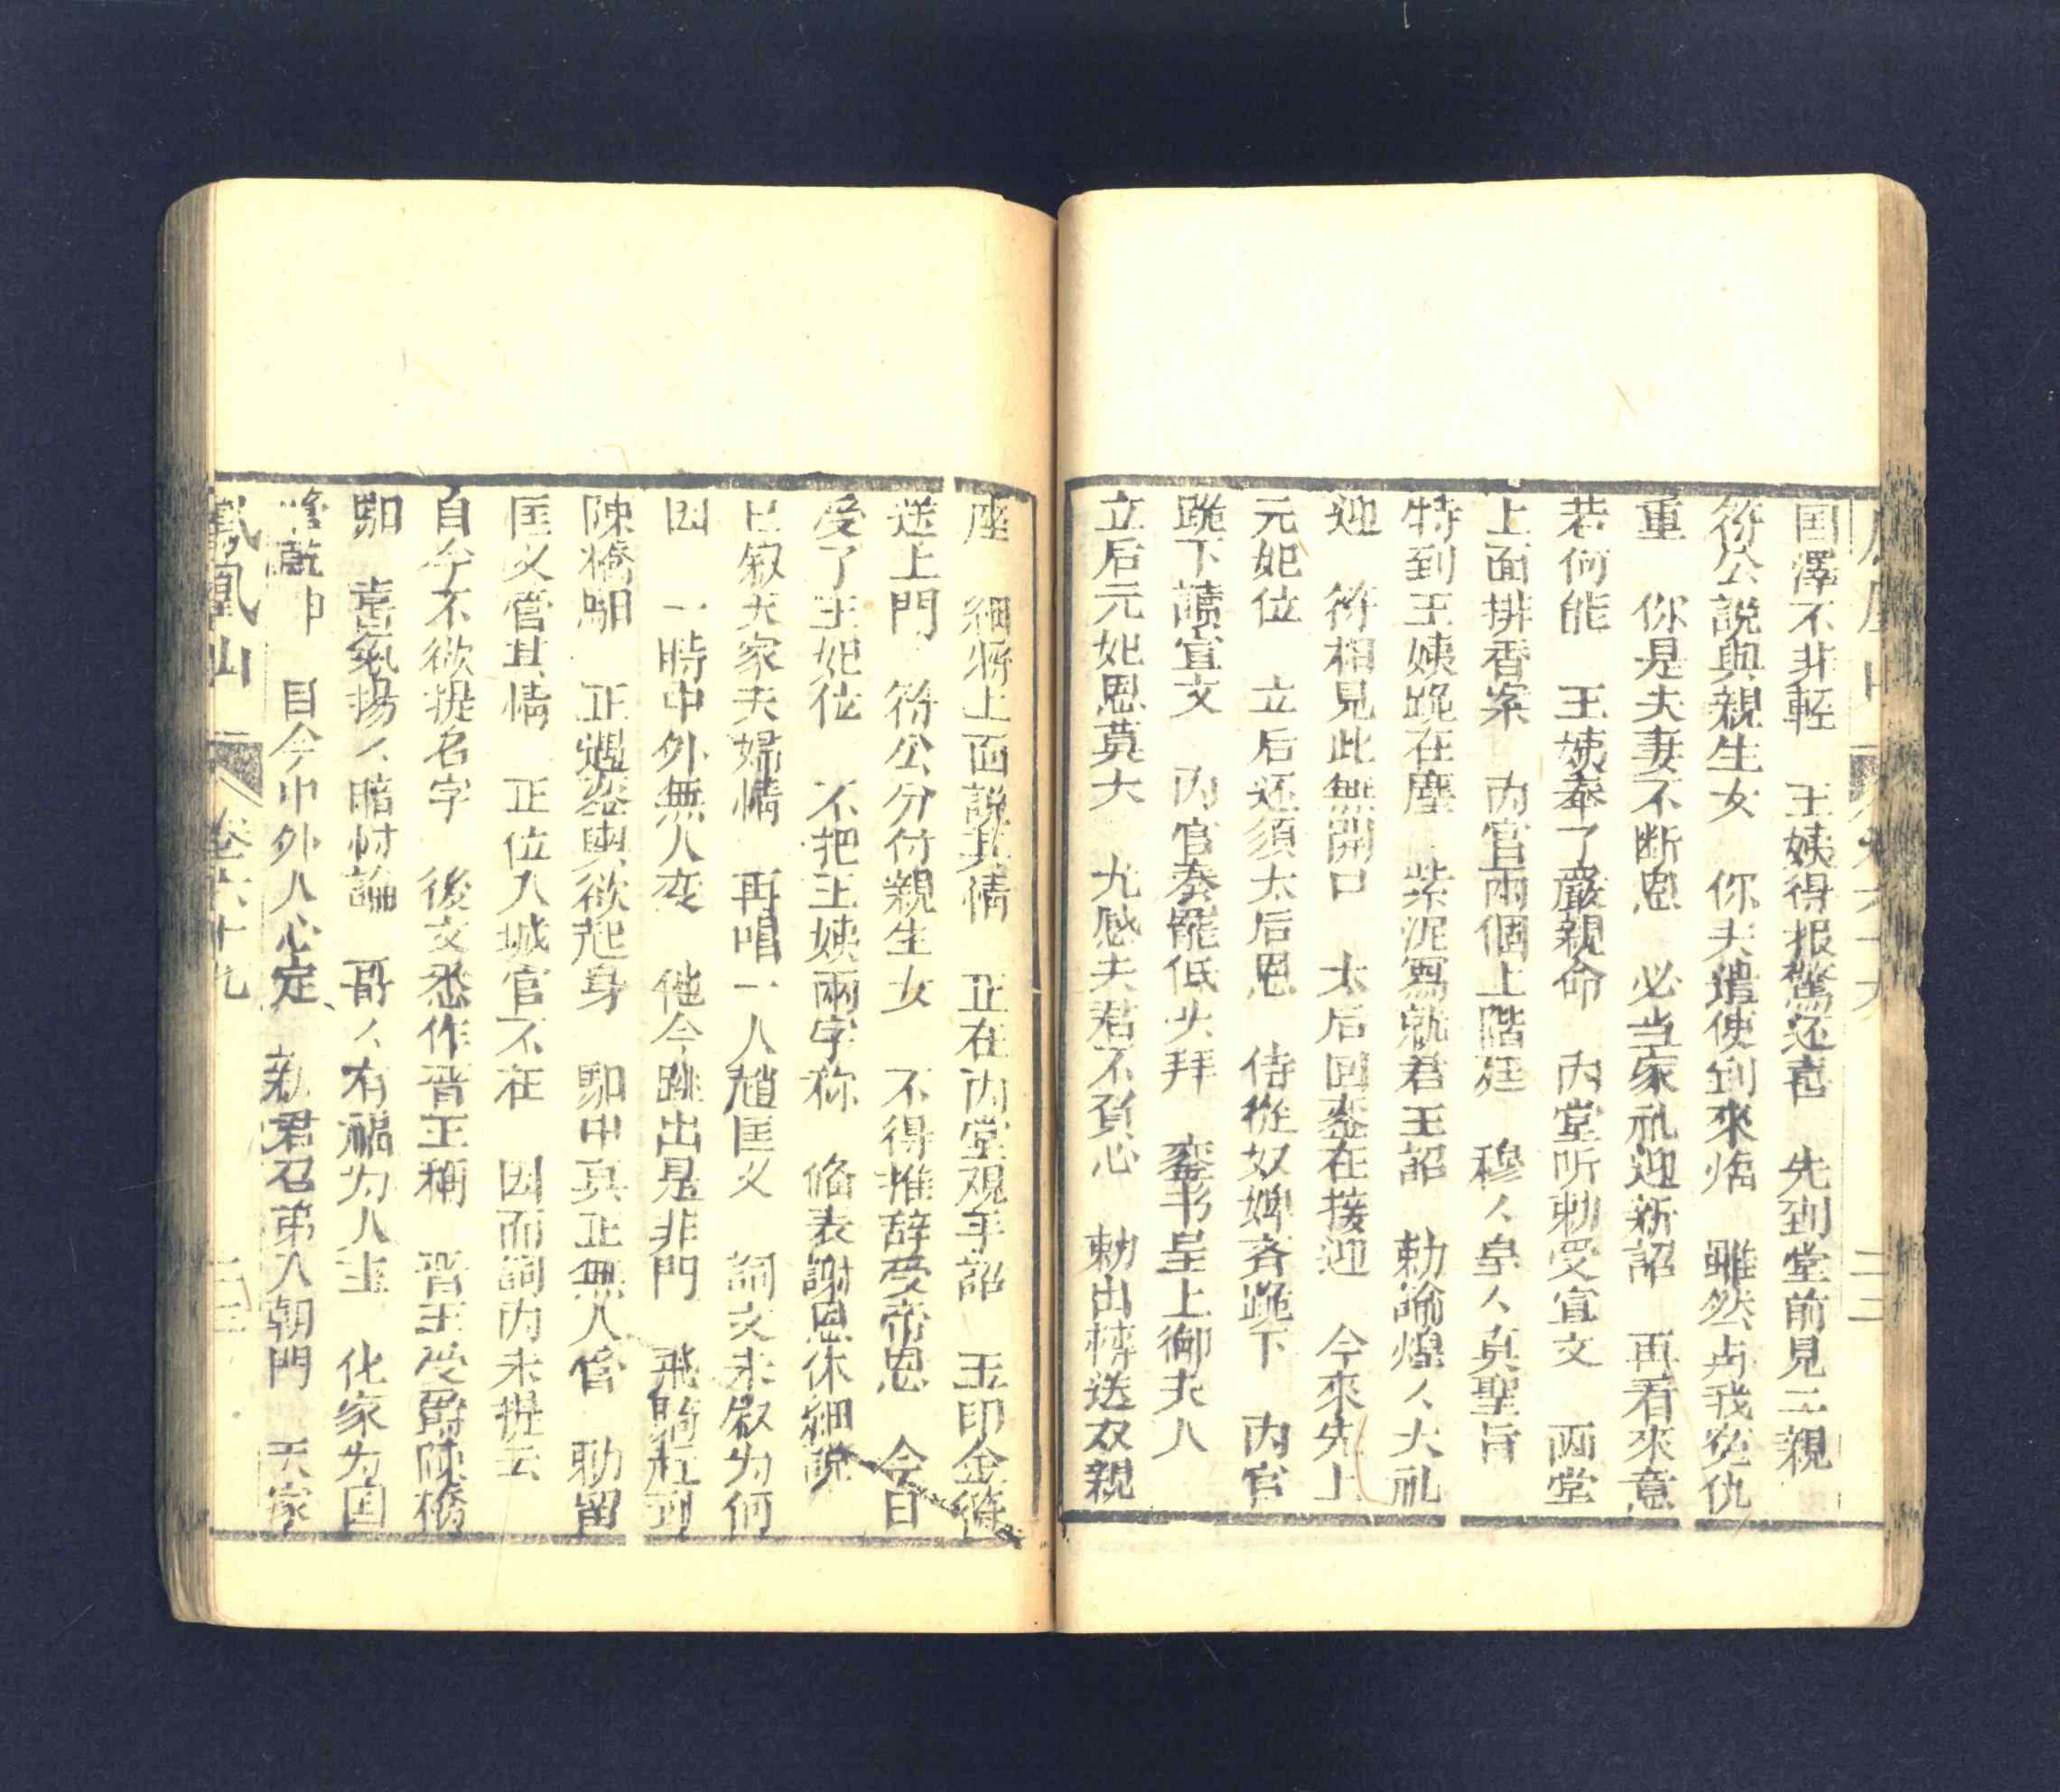 国澤不非輕　王姨得报驚还喜　先到堂前見二親
符公說與親生女　你夫遣使到來临　雖然占我寃仇
重　你是夫妻不断恩　必当家礼迎新詔　再看來意
若何能　王姨奉了嚴親命　內堂听勅受宣文　两堂
上面排香案　內官兩個上階廷　穆〻皇〻真聖旨
特到王姨跪在塵　紫泥寫就君王詔　勅諭煌〻大礼
迎　符相見此無開口　太后回鑾在接迎　今來先上
元妃位　立后还須太后恩　侍從奴婢齐跪下　內官
跪下讀宣文　內官奏罷低头拜　鸾书呈上御夫人
立后元妃恩莫大　尤感夫君不負心　勅出梓送双親
座　細將上面說其情　正在內堂观手詔　玉印金符
送上門　符公分付親生女　不得推辞受帝恩　今日
受了王妃位　不把王姨兩字称　俻表謝恩休細說
已叙天家夫婦情　再唱一人趙匡义　詞文未叙为何
因　一時中外無人变　他今跳出是非門　飛騎赶到
陳橋駅　正遇鑾輿欲起身　駅中真正無人管　勅留
匡义管其情　正位入城官不在　因而詞內未提云
自今不欲提名字　後文悉作晋王稱　晋王受爵陳橋
駅　喜氣揚〻暗忖論　哥〻有福为人主　化家为国
整乾坤　目今中外人心定　新君召弟入朝門　天家
鳳凰山　卷六十九　二三